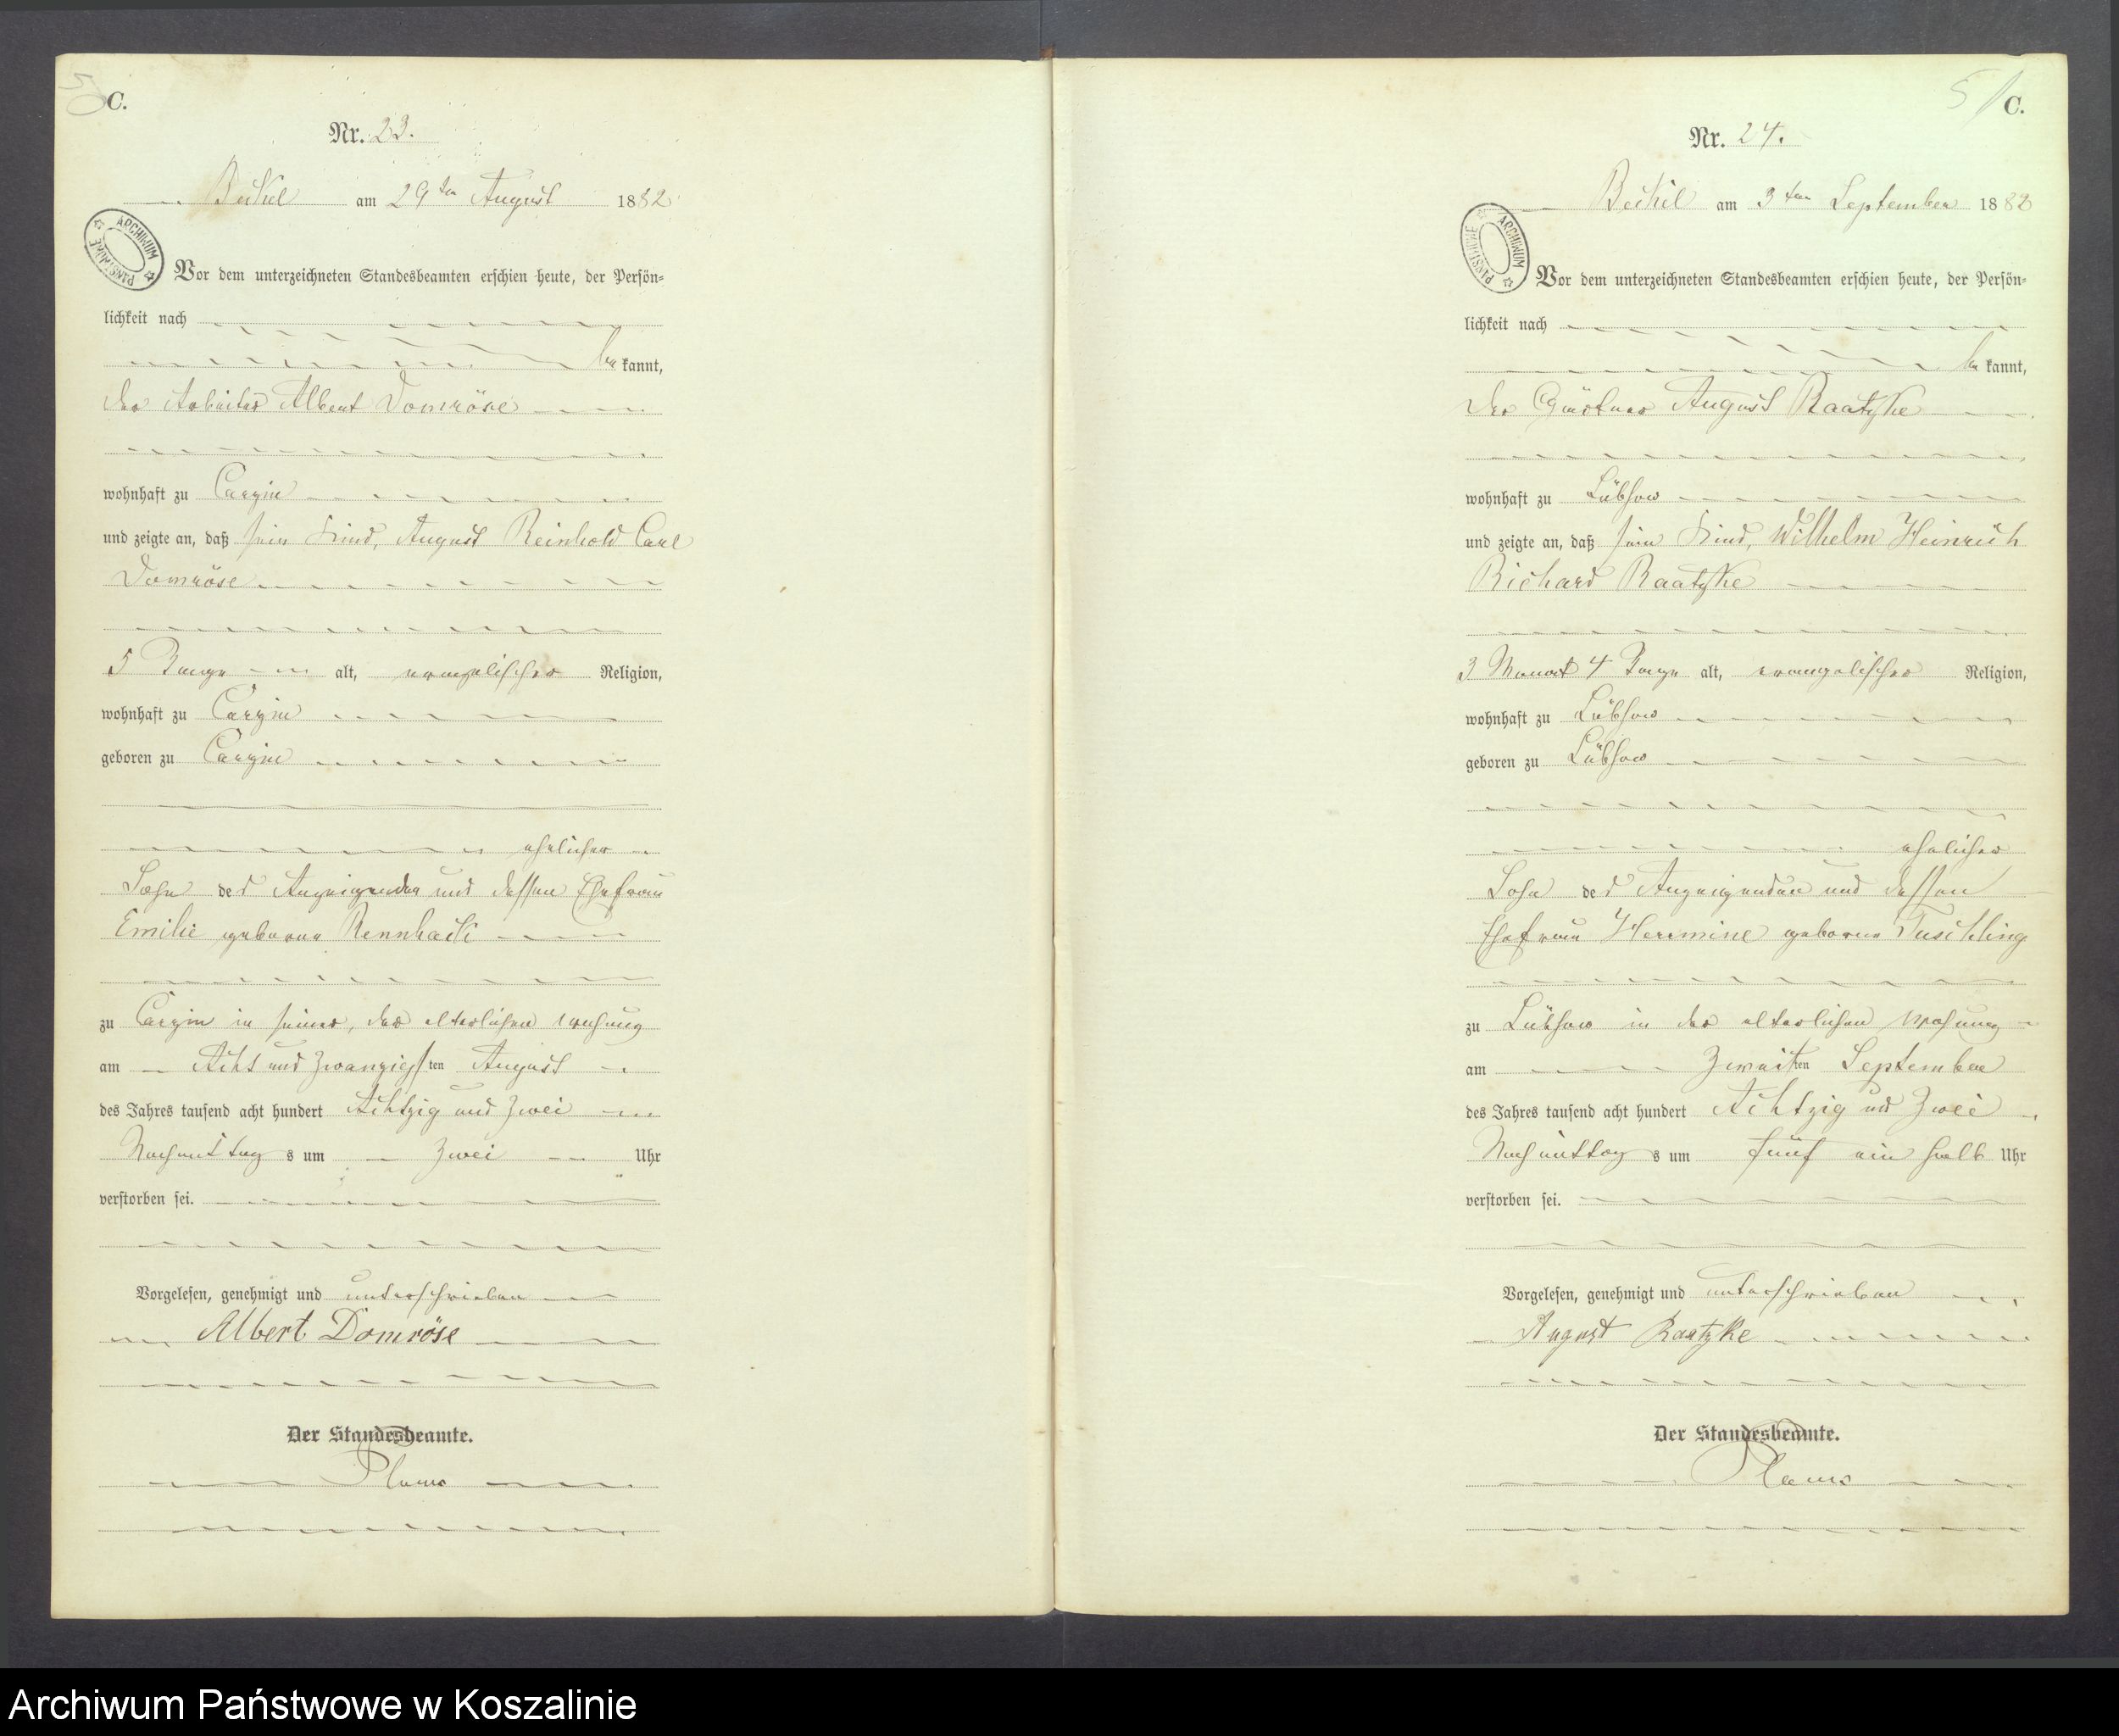 50
C.
Nr. 23.
Beckel am 29ten August 1882
ARCHIWUM PAŃSTWOWE
Vor dem unterzeichneten Standesbeamten erschien heute, der Persön=
lichkeit nach
be kannt,
der Arbeiter Albert Domröse
wohnhaft zu Carzin
und zeigte an, daß sein Kind, August Reinhold Carl
Domröse
5 Tage alt, evangelischer Religion,
wohnhaft zu Carzin
geboren zu Carzin
ehelicher
Sohn des Anzeigenden und dessen Ehefrau
Emilie geborene Rennhack
zu Carzin in seiner, der elterlichen Wohnung
am Acht und zwanzigsten August
des Jahres tausend acht hundert Achtzig und Zwei
Nachmittags um Zwei Uhr
verstorben sei.
Vorgelesen, genehmigt und unterschrieben
Albert Domröse
Der Standesbeamte.
51
C.
Nr. 24.
Beckel am 3ten September 1882
ARCHIWUM PAŃSTWOWE
Vor dem unterzeichneten Standesbeamten erschien heute, der Persön=
lichkeit nach
be kannt,
der Gärtner August Raatzke
wohnhaft zu Lübsow
und zeigte an, daß sein Kind, Wilhelm Heinrich
Richard Raatzke
3 Monat 4 Tage alt, evangelischer Religion,
wohnhaft zu Lübsow
geboren zu Lübsow
ehelicher
Sohn des Anzeigenden und dessen
Ehefrau Hermine geborene Tuschling
zu Lübsow in der elterlichen Wohnung
am Zweiten September
des Jahres tausend acht hundert Achtzig und Zwei
Nachmittags um fünf ein halb Uhr
verstorben sei.
Vorgelesen, genehmigt und unterschrieben
August Raatzke
Der Standesbeamte.
Archiwum Państwowe w Koszalinie